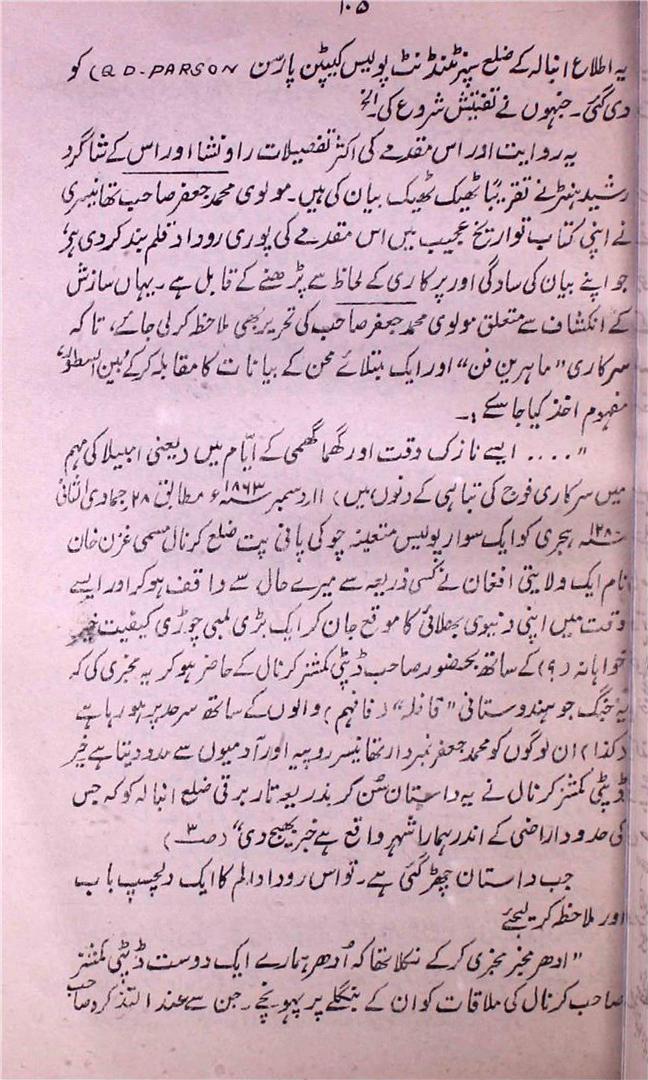 ۱۰۵
یہ اطلاع انبالہ کے ضلع سپرنٹنڈنٹ پولیس کیپٹن پارسن Q D-PARSON) کو
دی گئی۔ جنہوں نے تفتیش شروع کی۔ الخ
یہ روایت اور اس مقدمے کی اکثر تفصیلات راونشا اور اس کے شاگرد
رشید ہنٹر نے تقریباً ٹھیک ٹھیک بیان کی ہیں۔ مولوی محمد جعفر صاحب تھانیسری
نے اپنی کتاب تواریخ عجیب میں اس مقدمے کی پوری روداد قلم بند کر دی ہے،
جو اپنے بیان کی سادگی اور پرکاری کے لحاظ سے پڑھنے کے قابل ہے۔ یہاں سازش
کے انکشاف سے متعلق مولوی محمد جعفر صاحب کی تحریر بھی ملاحظہ کر لی جائے، تا کہ
سرکاری "ماہرین فن" اور ایک مبتلائے محن کے بیانات کا مقابلہ کر کے بین السطور
مفہوم اخذ کیا جا سکے :۔
".... ایسے نازک وقت اور گھما گھمی کے ایام میں (یعنی امبیلا کی مہم
میں سرکاری فوج کی تباہی کے دنوں میں) ۱۱ دسمبر ۱۸۶۳ء مطابق ۲۸ جمادی الثانی
۱۲۸۰ ہجری کو ایک سوار پولیس متعینہ چوکی پانی پت ضلع کرنال مسمی غزن خان
نام ایک ولایتی افغان نے کسی ذریعہ سے میرے حال سے واقف ہو کر اور ایسے
وقت میں اپنی دنیوی بھلائی کا موقع جان کر ایک بڑی لمبی چوڑی کیفیت خیر
خواہانہ (؟) کے ساتھ بحضور صاحب ڈپٹی کمشنر کرنال کے حاضر ہو کر یہ مخبری کی کہ
یہ جنگ جو ہندوستانی "قافلہ" (فافہم) والوں کے ساتھ سرحد پر ہو رہا ہے
(کذا) ان لوگوں کو محمد جعفر نمبردار تھانیسر روپیہ اور آدمیوں سے مدد دیتا ہے خیر
ڈپٹی کمشنر کرنال نے یہ داستان سن کر بذریعہ تار برقی ضلع انبالہ کو کہ جس
کی حدود اراضی کے اندر ہمارا شہر واقع ہے خبر بھیج دی" (ص۳)
جب داستان چھڑ گئی ہے۔ تو اس روداد الم کا ایک دلچسپ باب
اور ملاحظہ کر لیجئے
"ادھر مخبر مخبری کر کے نکلا تھا کہ اُدھر ہمارے ایک دوست ڈپٹی کمشنر
صاحب کرنال کی ملاقات کو ان کے بنگلے پر پہونچے۔ جن سے عند التذکرہ صاحب